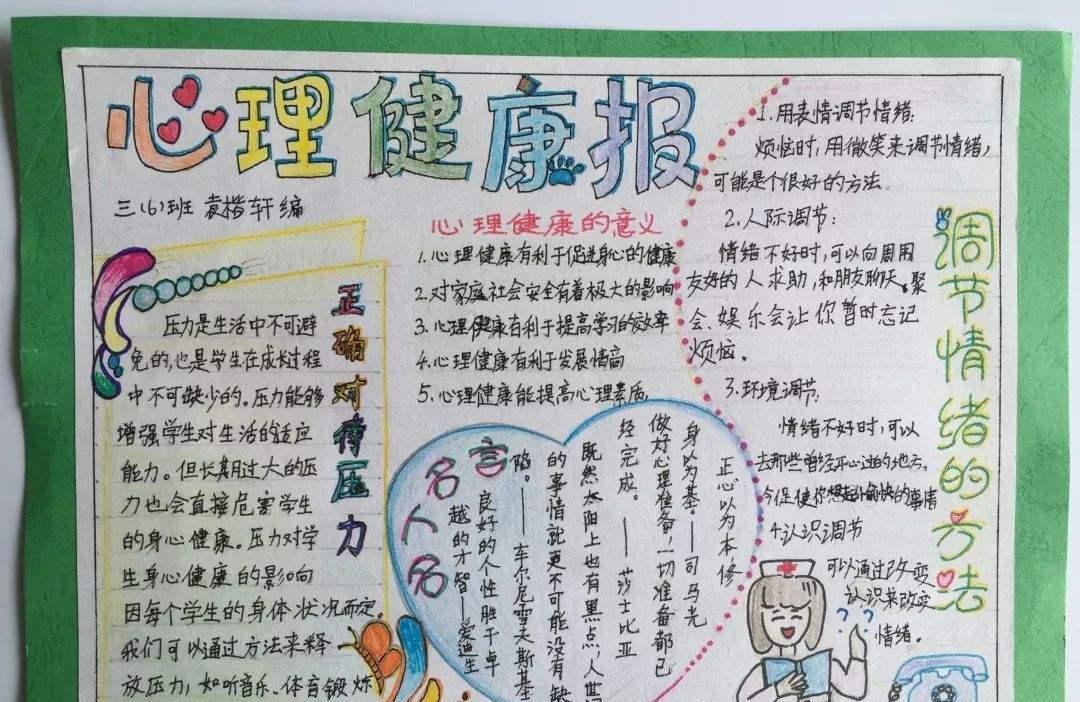 心理健康报
三(6)班 袁楷轩编
正确对待压力
压力是生活中不可避
免的,也是学生在成长过程
中不可缺少的。压力能够
增强学生对生活的适应
能力。但长期过大的压
力也会直接危害学生
的身心健康。压力对学
生身心健康的影响
因每个学生的身体状况而定。
我们可以通过方法来释
放压力,如听音乐、体育锻炼
心理健康的意义
1.心理健康有利于促进身心的健康
2.对家庭社会安全有着极大的影响
3.心理健康有利于提高学习的效率
4.心理健康有利于发展情高
5.心理健康能提高心理素质
名人名言
正心以为本修
身以为基——司马光
做好心理准备,一切准备都已
经完成。——莎士比亚
既然太阳上也有黑点,人世间
的事情就更不可能没有缺
陷。——车尔尼雪夫斯基
良好的个性胜于卓
越的才智——爱迪生
调节情绪的方法
1.用表情调节情绪:
烦恼时,用微笑来调节情绪,
可能是个很好的方法。
2.人际调节:
情绪不好时,可以向周用
友好的人求助,和朋友聊天、聚
会、娱乐会让你暂时忘记
烦恼。
3.环境调节:
情绪不好时,可以
去那些曾经开心过的地方,
今促使你想起愉快的事情
4.认识调节
可以通过改变
认识来改变
情绪。
? ?